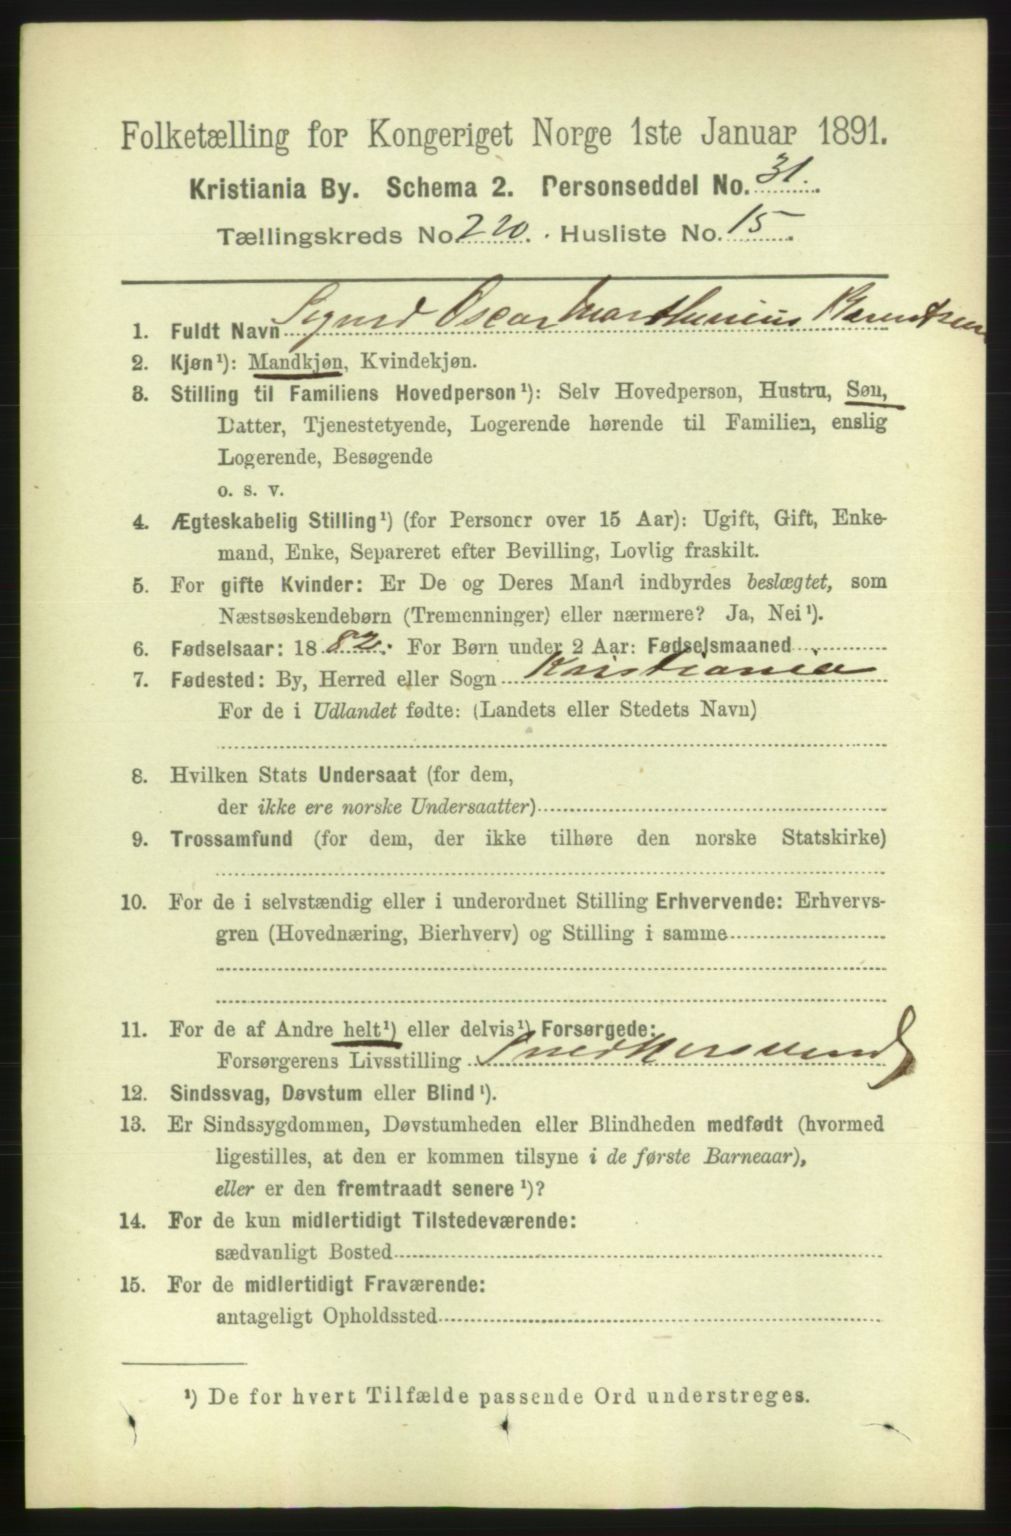 Folketælling for Kongeriget Norge 1ste Januar 1891.
Kristiania By. Schema 2. Personseddel No. 31.
Tællingskreds No. 220. Husliste No. 15.
1. Fuldt Navn Sigurd Oscar Marthinius Berentsen
2. Kjøn¹): Mandkjøn, Kvindekjøn.
3. Stilling til Familiens Hovedperson¹): Selv Hovedperson, Hustru, Søn,
Datter, Tjenestetyende, Logerende hørende til Familien, enslig
Logerende, Besøgende
o. s. v.
4. Ægteskabelig Stilling¹) (for Personer over 15 Aar): Ugift, Gift, Enke-
mand, Enke, Separeret efter Bevilling, Lovlig fraskilt.
5. For gifte Kvinder: Er De og Deres Mand indbyrdes beslægtet, som
Næstsøskendebørn (Tremenninger) eller nærmere? Ja, Nei¹).
6. Fødselsaar: 1882. For Børn under 2 Aar: Fødselsmaaned
7. Fødested: By, Herred eller Sogn Kristiania
For de i Udlandet fødte: (Landets eller Stedets Navn)
8. Hvilken Stats Undersaat (for dem,
der ikke ere norske Undersaatter)
9. Trossamfund (for dem, der ikke tilhøre den norske Statskirke)
10. For de i selvstændig eller i underordnet Stilling Erhvervende: Erhvervs-
gren (Hovednæring, Bierhverv) og Stilling i samme
11. For de af Andre helt¹) eller delvis¹) Forsørgede:
Forsørgerens Livsstilling Snedkersvend
12. Sindssvag, Døvstum eller Blind¹).
13. Er Sindssygdommen, Døvstumheden eller Blindheden medfødt (hvormed
ligestilles, at den er kommen tilsyne i de første Barneaar),
eller er den fremtraadt senere¹)?
14. For de kun midlertidigt Tilstedeværende:
sædvanligt Bosted
15. For de midlertidigt Fraværende:
antageligt Opholdssted
¹) De for hvert Tilfælde passende Ord understreges.